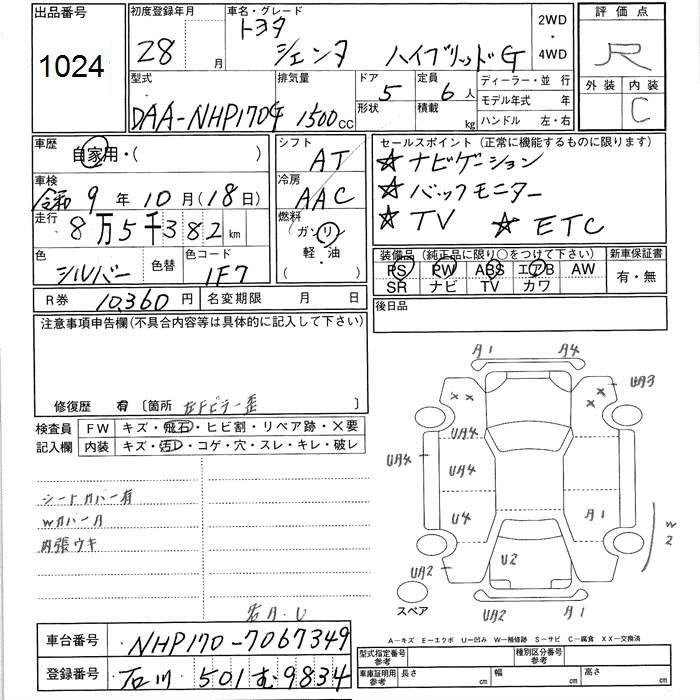 出品番号
1024
初度登録年月
28 月
車名・グレード
トヨタ
シエンタ ハイブリッドG
2WD
・
4WD
評価点
R
外装 内装
C
型式
DAA-NHP170G
排気量
1500 CC
ドア
5
形状
定員
6 人
積載
kg
ディーラー・並行
モデル年式 年
ハンドル 左・右
車歴
自家用・( )
車検
令和 9 年 10 月 (18 日)
走行
8万5千382 km
色
シルバー
色替
色コード
1F7
シフト
AT
冷房
AAC
燃料
ガソリン
軽・油
( )
セールスポイント (正常に機能するものに限ります)
☆ナビゲーション
☆バックモニター
☆TV ☆ETC
装備品 (純正品に限り○をつけて下さい)
PS PW ABS エアB AW
SR ナビ TV カワ
新車保証書
有・無
R券 10,360 円
名変期限 月 日
後日品
注意事項申告欄(不具合内容等は具体的に記入して下さい)
修復歴 有 〔箇所
検査員
記入欄
FW キズ・飛石・ヒビ割・リペア跡・×要
内装 キズ・汚レ・コゲ・穴・スレ・キレ・破レ
シートカバー有
Wカバー有
内張ウキ
A1 A4
UA3
UA4
UA4
UA4
U4
A1
W2
U2
UA2
UA2
UA2 A1
スペア
A−キズ E−エクボ U−凹み W−補修跡 S−サビ C−腐食 XX−交換済
車台番号 NHP170-7067349
登録番号 石川 501 む 9834
型式指定番号
参考
種別区分番号
参考
車庫証明用
参考
長さ cm
幅 cm
高さ cm